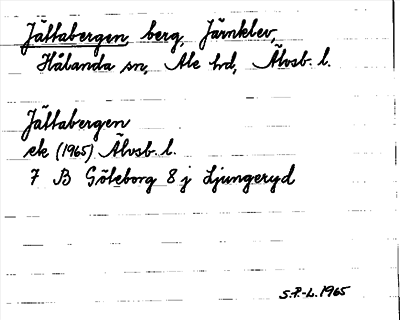 Jättabergen, berg, Järnklev,
Hålanda sn, Ale hd, Älvsb. l.
Jättabergen
ek (1965) Älvsb. l.
7 B Göteborg 8 j Ljungeryd
S.P-L. 1965